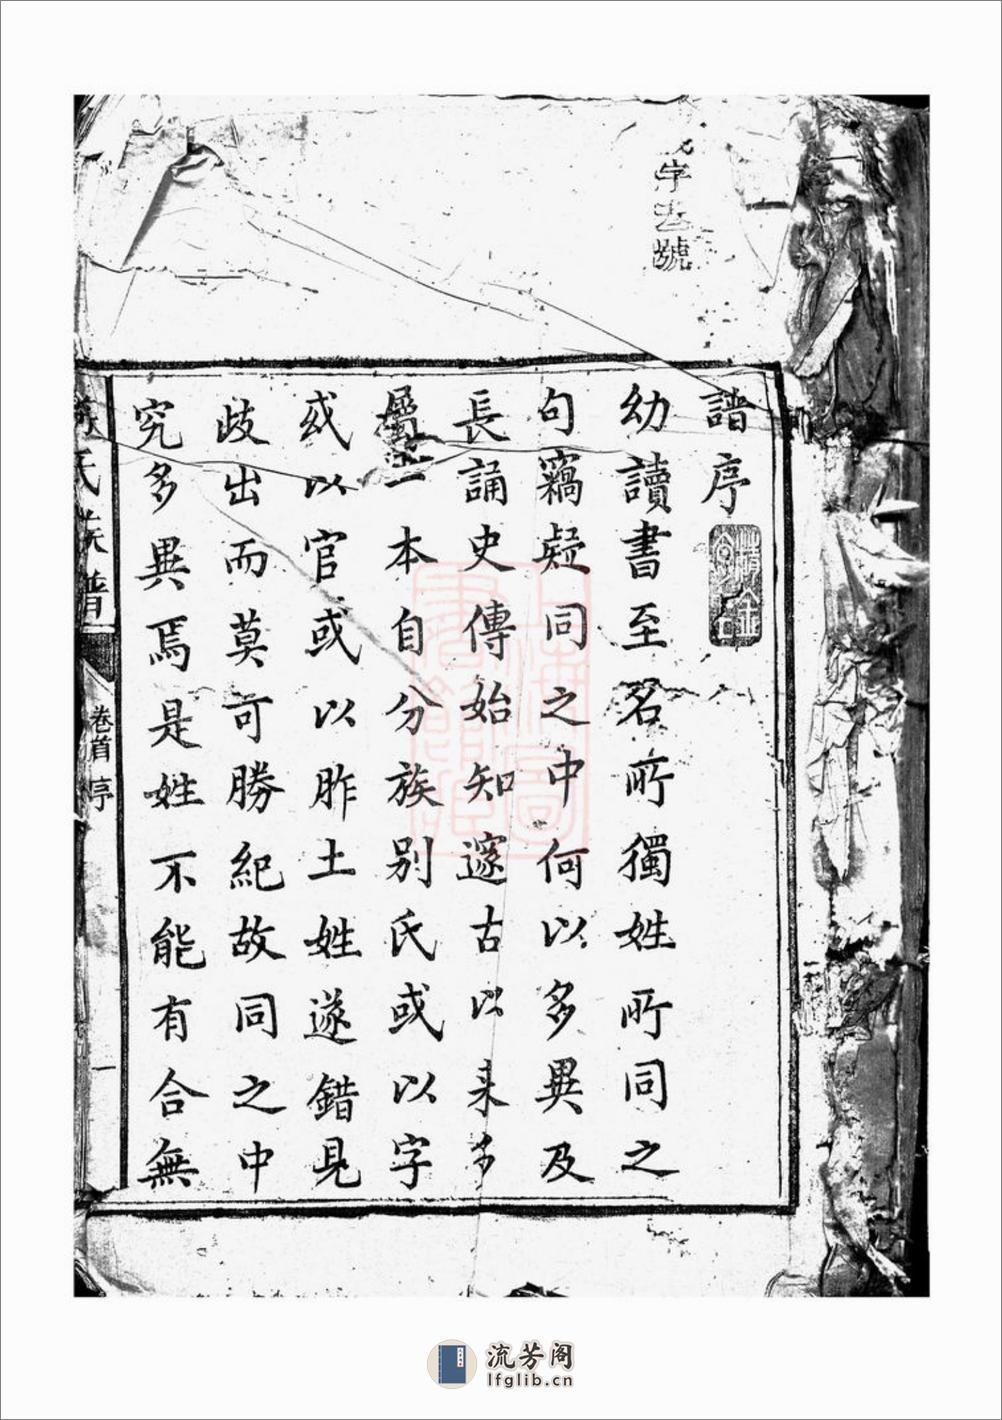 字 號
譜序
幼讀書至名所獨姓所同之
句竊疑同之中何以多異及
長誦史傳始知邃古以来多
一本自分族别氏或以字
或以官或以胙土姓遂錯見
歧出而莫可勝紀故同之中
究多異焉是姓不能有合無
氏族譜
卷首 序
一
上海圖書館藏
流芳阁
lfglib.cn